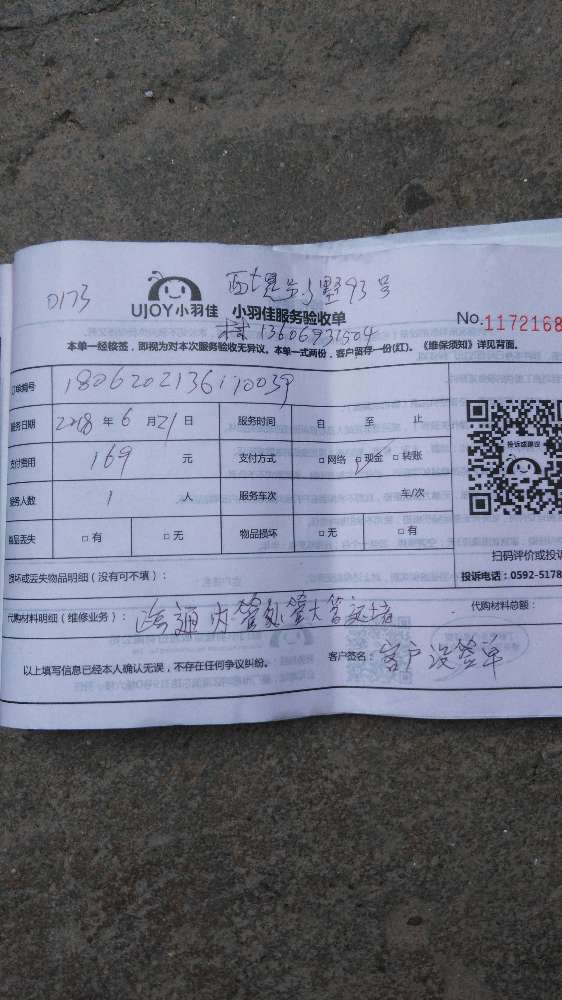 0173
UJOY小羽佳 小羽佳服务验收单
93号
13606931504
No.1172168
本单一经核签，即视为对本次服务验收无异议。本单一式两份，客户留存一份(红)。《维保须知》详见背面。
订单编号 1806202136110039
服务日期 2018 年 6 月 21 日 服务时间 自 至 止
支付费用 169 元 支付方式 □网络 □现金 □转账
服务人数 1 人 服务车次 车/次
物品丢失 □有 □无 物品损坏 □无 □有
损坏或丢失物品明细（没有可不填）：
代购材料明细（维修业务）： 通内管 大管 代购材料总额：
以上填写信息已经本人确认无误，不存在任何争议纠纷。 客户签名： 客户没签单
投诉或建议
扫码评价或投诉
投诉电话：0592-5178